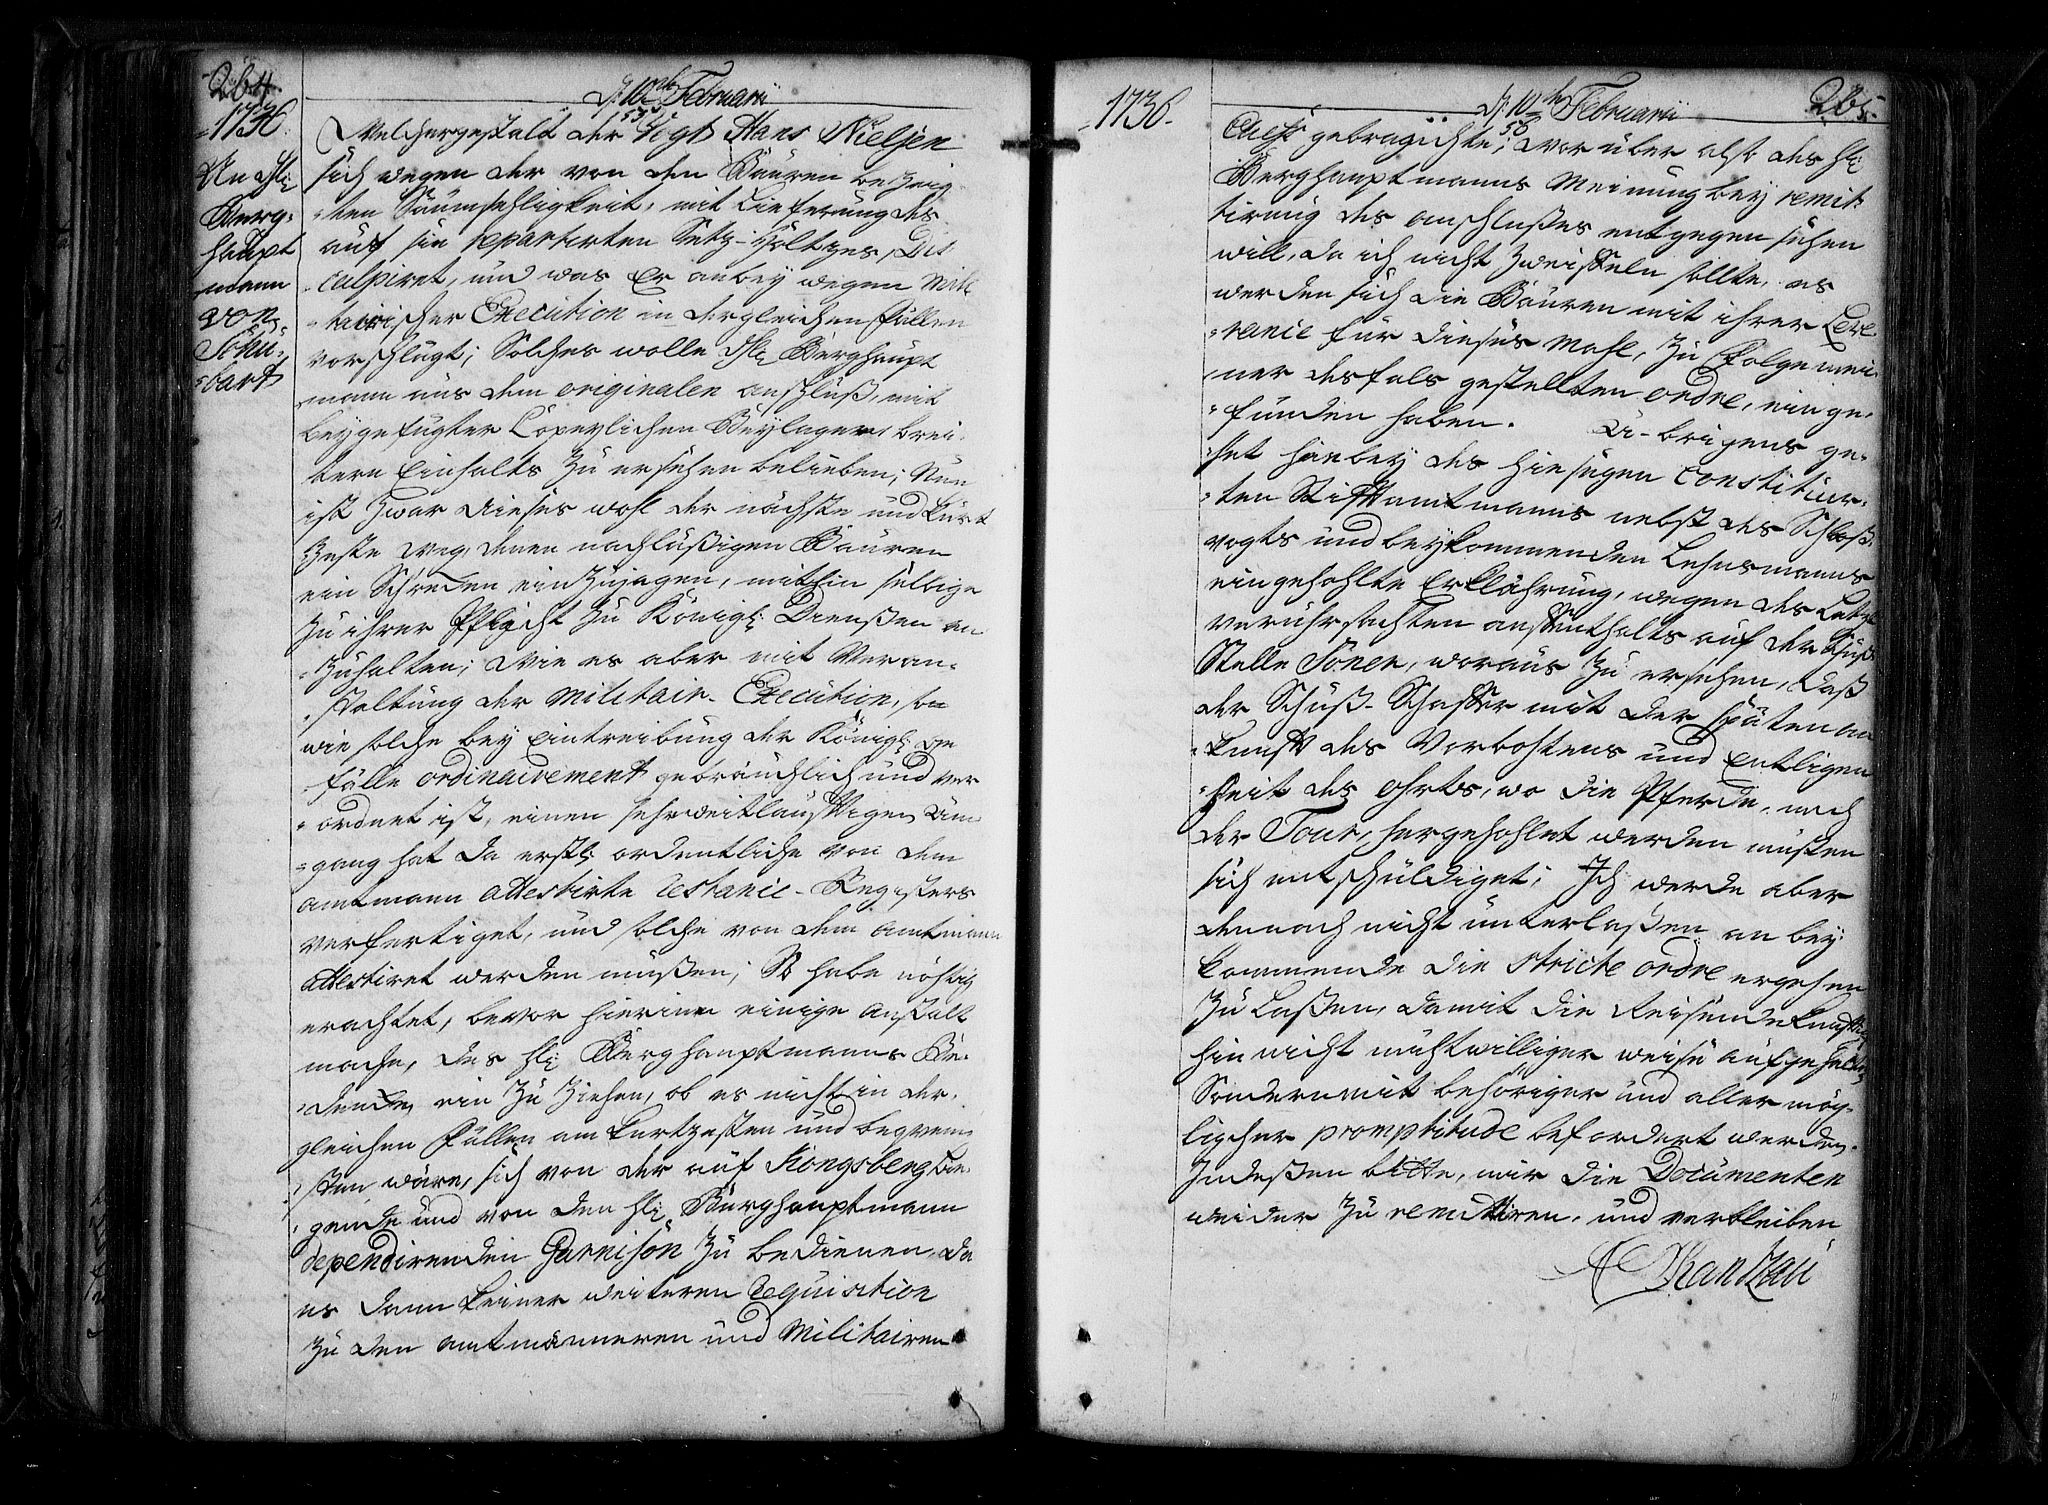 264.
d. 10ten Februarii
1736.
An H:
Berg-
haupt
mann
von
Schu-
bart
Welchergestalt der Vogt Hans Nielsen
sich wegen der von den Bauren bezeig-
ten Säumsehligkeit, mit Lieferung des
auf sie repartirten Setz-Holtzes, Dis
culpiret, und was Er anbey wegen Mili-
tairischer Execution in dergleichen Fällen
vorschlägt; Solches wolle H: Berghaupt
mann aus dem originalen anschluß, mit
beygefügter Copeylichen Beylagen, brei-
tern Einhalts zu ersehen belieben; Nun
ist zwar dieses wohl der nächste und kürt
zeste weg, denen nachläßigen Bauren
ein Schreken einzujagen, mithin selbige
zu ihrer Pflicht zu Königl: Diensten an
zuhalten; wie es aber mit Veran-
staltung der Militair-Execution, so
wie solche bey Eintreibung der Königl: Ge
fälle ordinairement gebräuchlich und ver
ordnet ist, einen sehr weitläufftigen Um
gang hat da erstl: ordentliche von dem
amtmann attestirte Restance-Registers
verfertiget, und solche von dem amtmann
attestiret werden müßen; So habe nöhtig
erachtet, bevor hierinn einige Anstalt
mache, des H: Berghauptmanns Be-
denken ein zu ziehen, ob es nicht in der-
gleichen Fällen am kurtzesten und beqvem
sten wäre, sich von der auf Kongsberg lie-
gende und von den H: Berghauptmann
dependirenden Garnison zu bedienen, da
es dann keiner weiteren Requisition
zu den amtmänneren und Militairen
1736.
d. 10ten Februarii
265.
Chefs gebrauchte; worüber also des H:
Berghauptmanns Meinung bey remit-
tirung des anschlußes entgegen sehen
will, da ich nicht zweiffeln sollte, es
werden sich die Bauren mit ihrer
für dieses mahl, zu Folge mei-
ner desfals gestellten ordre, einge-
funden haben. Ubrigens ge-
het hierbey des hiesigen Constituir-
ten Stifftamtmanns nebst des Schloß-
vogts und beykommenden Lehnsmanns
eingehohlte Erklährung, wegen des letzt
veruhrsachten auffenthalts auf der Schuß-
Stelle Soner, woraus zu ersehen, daß
der Schuß-Schaffer mit der späten an
kunfft des Vorbohtens und Entligen
heit des ohrts, wo die Pferde, nach
der Tour, hergehohlet werden müßen
sich entschuldiget; Ich werde aber
dennoch nicht unterlaßen an bey
kommende die stricte ordre ergehen
zu laßen, damit die Reisende kunfftig
hin nicht muhtwilliger weise aufgehalten
Sondern mit behöriger und aller mög-
licher promptitude befordert werden.
Indeßen bitte, mir die Documenten
wieder zu remittiren, und verbleiben
C Rantzau